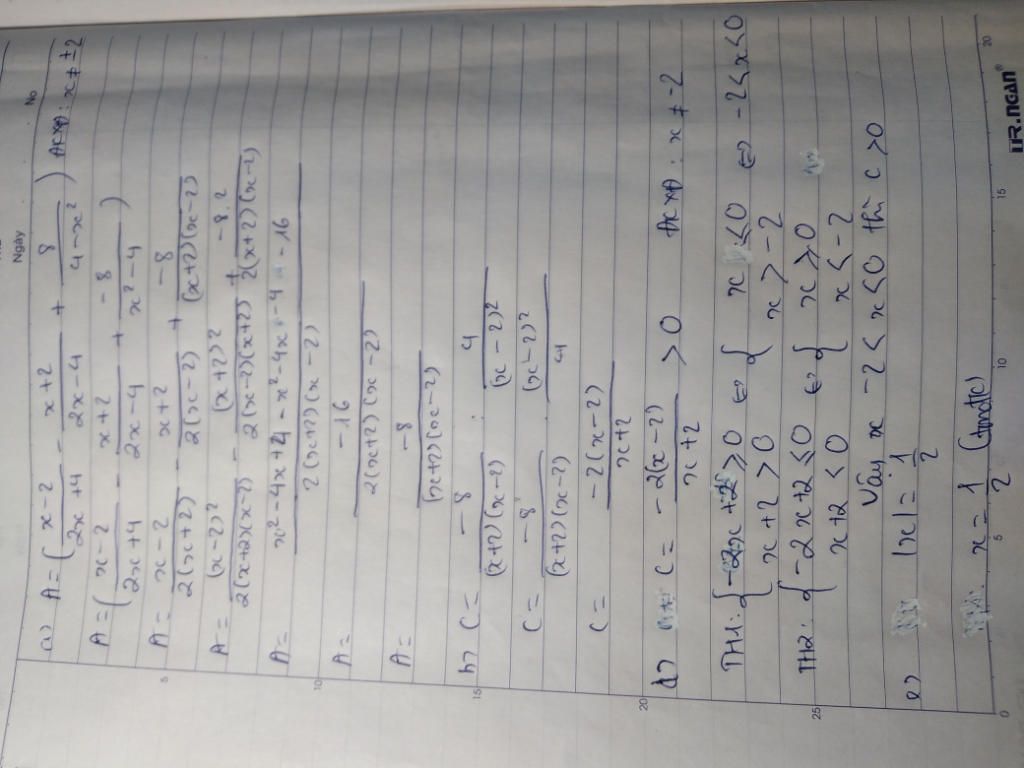 Ngày No
a) A = ( x-2 / 2x+4 - x+2 / 2x-4 + 8 / 4-x² ) ĐKXĐ: x ≠ ±2
A = ( x-2 / 2x+4 - x+2 / 2x-4 + -8 / x²-4 )
A = x-2 / 2(x+2) - x+2 / 2(x-2) + -8 / (x+2)(x-2)
A = (x-2)² / 2(x+2)(x-2) - (x+2)² / 2(x-2)(x+2) + -8.2 / 2(x+2)(x-2)
A = x²-4x+4-x²-4x-4-16 / 2(x+2)(x-2)
A = -16 / 2(x+2)(x-2)
A = -8 / (x+2)(x-2)
b) C = -8 / (x+2)(x-2) : 4 / (x-2)²
C = -8 / (x+2)(x-2) . (x-2)² / 4
C = -2(x-2) / x+2
d) C = -2(x-2) / x+2 > 0 ĐKXĐ: x ≠ -2
TH1: { -2x+2 ≥ 0 ⇔ { x ≤ 0 ⇔ -2 < x < 0
x+2 > 0 x > -2
TH2: { -2x+2 ≤ 0 ⇔ { x ≥ 0
x+2 < 0 x < -2
Vậy x -2 < x < 0 thì C > 0
e) |x| = 1/2
x = 1/2 (tmđk)
5
10
15
20
25
0 5 10 15 20
TR.NGAN®